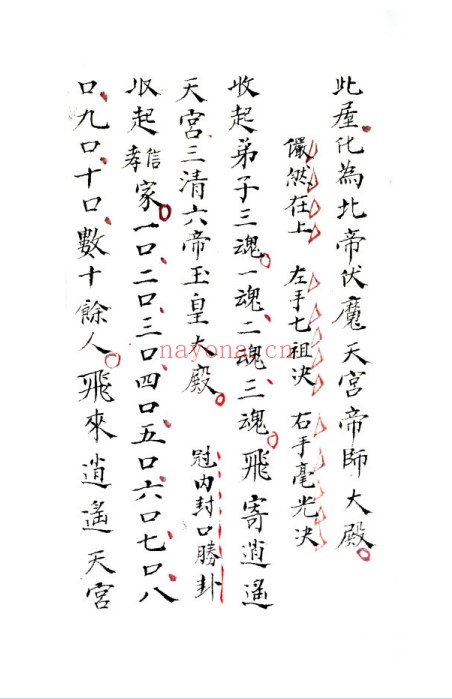 此座化為北帝伏魔天宮帝師大殿
儼然在上 左手七祖決 右手毫光决
收起弟子三魂一魂二魂三魂飛寄逍遥
天宮三清六帝玉皇大殿 冠內封口勝卦
收起信孝家一口二口三口四口五口六口七口八
口九口十口數十餘人飛來逍遙天宮
nayona.cn